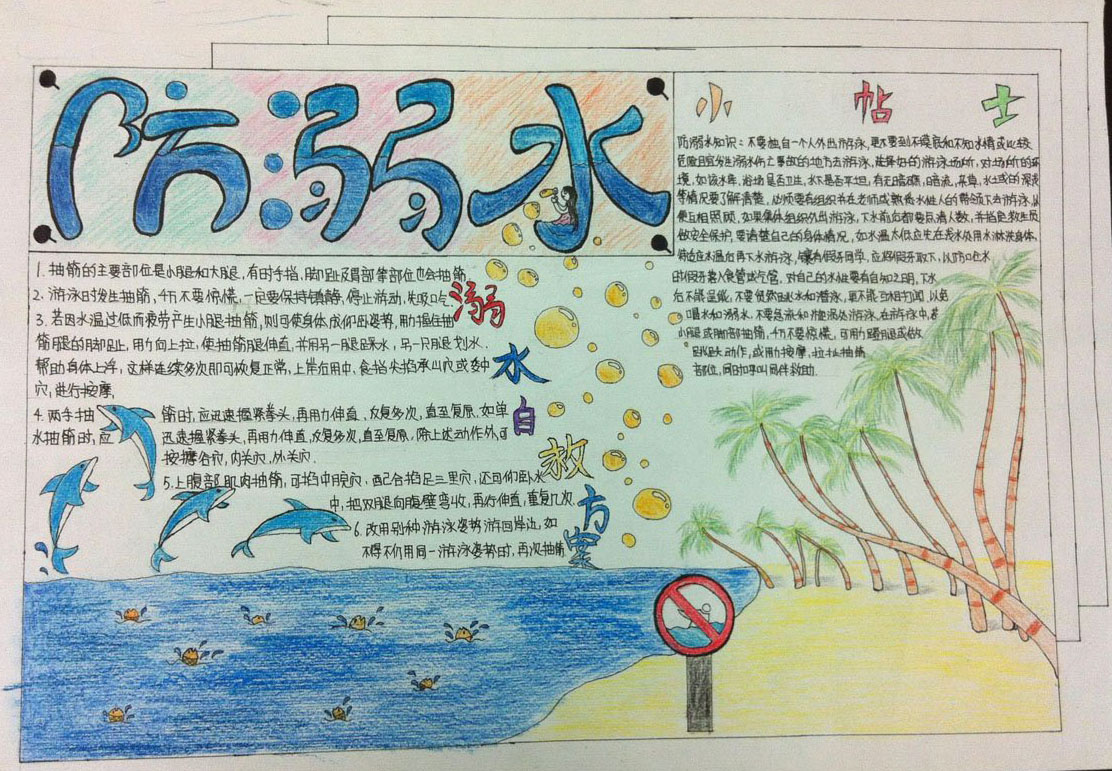 防溺水
小帖士
1. 抽筋的主要部位是小腿和大腿,有时手指,脚趾及胃部等部位也会抽筋
2. 游泳时发生抽筋,千万不要惊慌,一定要保持镇静,停止游动,先吸口气
3. 若因水温过低而疲劳产生小腿抽筋,则可使身体成仰卧姿势,用力握住抽
筋腿的脚趾,用力向上拉,使抽筋腿伸直,并用另一腿踩水,另一只腿划水,
帮助身体上浮,这样连续多次即可恢复正常,上岸后用中,食指尖掐承山穴或委中
穴,进行按摩,
4. 两手抽筋时,应迅速握紧拳头,再用力伸直,反复多次,直至复原,如单
水抽筋时,应迅速握紧拳头,再用力伸直,反复多次,直至复原,除上述动作外,可
按摩合穴,内关穴,外关穴.
5.上腹部肌肉抽筋,可掐中脘穴,配合掐足三里穴,还可仰卧水
中,把双腿向腹壁弯收,再行伸直,重复几次,
6. 改用别种游泳姿势游回岸边,如
不得不仍用同一游泳姿势时,再次抽筋
溺水自救方案
防溺水知识:不要独自一个人外出游泳,更不要到不摸底和不知水情或比较
危险且宜发生溺水伤亡事故的地方去游泳,选择好的游泳场所,对场所的环
境,如该水库,浴场是否卫生,水下是否平坦,有无暗礁,暗流,杂草,水域的深浅
等情况要了解清楚,必须要有组织并在老师或熟悉水性人的带领下去游泳,以
便互相照顾,如果集体组织外出游泳,下水前后都要点清人数,并指定救生员
做安全保护,要清楚自己的身体情况,如水温太低应先在浅水处用水淋洗身体,
待适应水温后再下水游泳,镶有假牙同学,应将假牙取下,以防呛水
时假牙落入食管或气管,对自己的水性要有自知之明,下水
后不能逞能,不要贸然跳水和潜泳,更不能互相打闹,以免
喝水和溺水,不要在急流和漩涡处游泳,在游泳中,若
小腿或脚部抽筋,千万不要惊慌,可用力蹬腿或做
跳跃动作,或用力按摩,拉扯抽筋
部位,同时呼叫同伴救助.